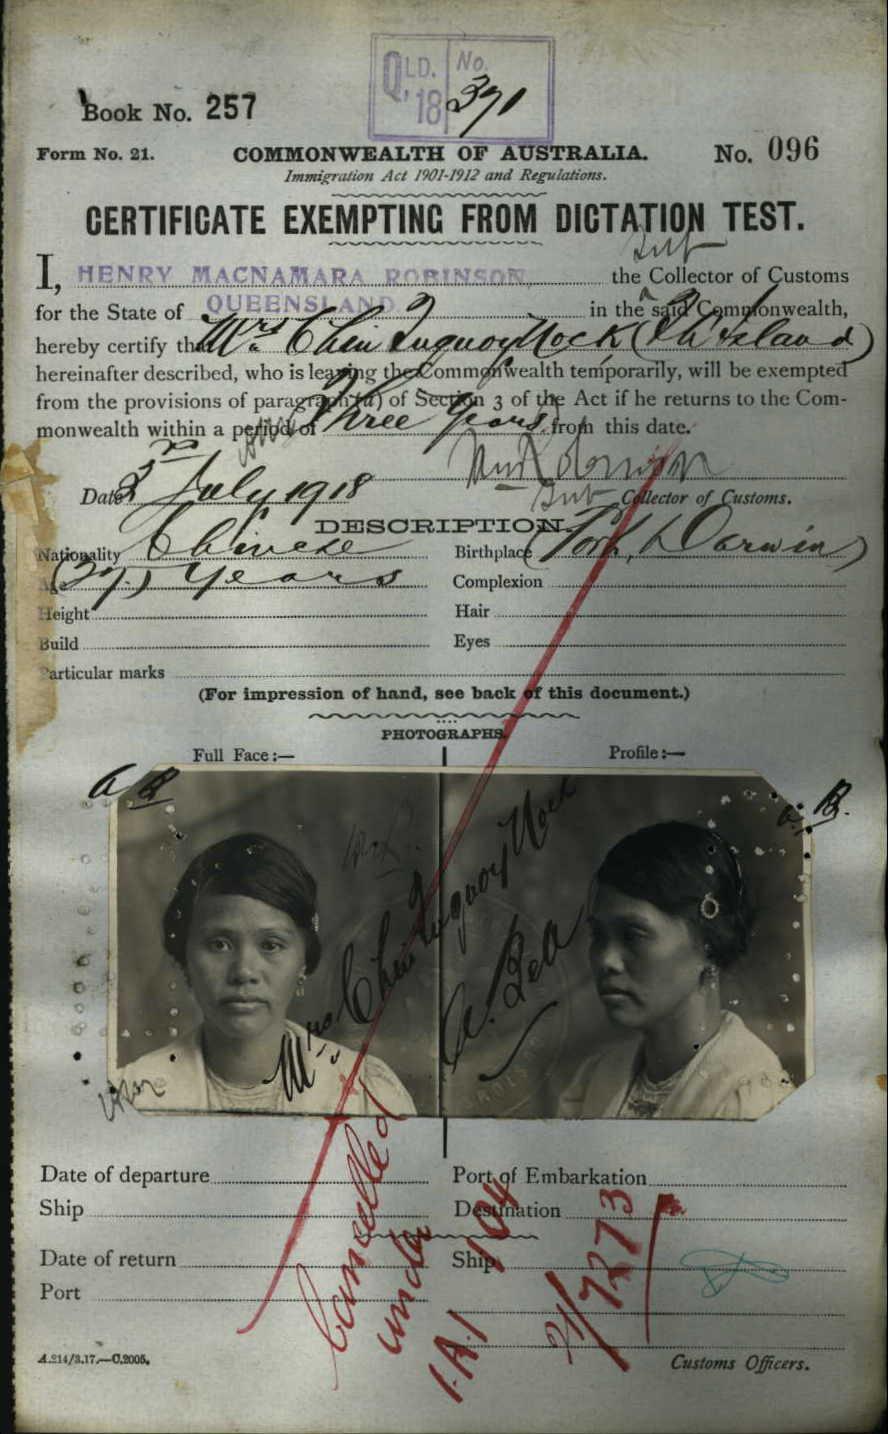 QLD. No.
'18 391
Book No. 257
Form No. 21. COMMONWEALTH OF AUSTRALIA. No. 096
Immigration Act 1901-1912 and Regulations.
CERTIFICATE EXEMPTING FROM DICTATION TEST.
Sub
I, HENRY MACNAMARA ROBINSON, the Collector of Customs
for the State of QUEENSLAND in the said Commonwealth,
hereby certify that Mrs. Chin Tuquoy Nock (Th Island)
hereinafter described, who is leaving the Commonwealth temporarily, will be exempted
from the provisions of paragraph (a) of Section 3 of the Act if he returns to the Com-
monwealth within a period of Three Years from this date.
Date 2nd July 1918
Sub Collector of Customs.
DESCRIPTION.
Nationality Chinese Birthplace (Port Darwin)
Age (37) Years Complexion
Height Hair
Build Eyes
Particular marks
(For impression of hand, see back of this document.)
PHOTOGRAPHS.
Full Face:— Profile:—
Mrs. Chin Tuquoy Nock
A. Bell
Date of departure Port of Embarkation
Ship Destination
Date of return Ship
Port
Cancelled
under
21/7273
A.214/3.17.—C.2005. Customs Officers.